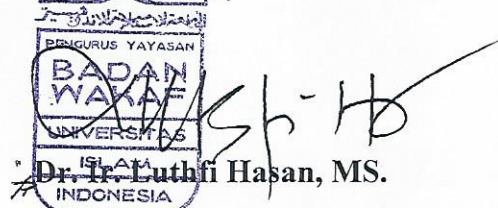 PENGURUS YAYASAN
BADAN
WAKAF
UNIVERSITAS
ISLAM
INDONESIA
Dr. Ir. Luthfi Hasan, MS.